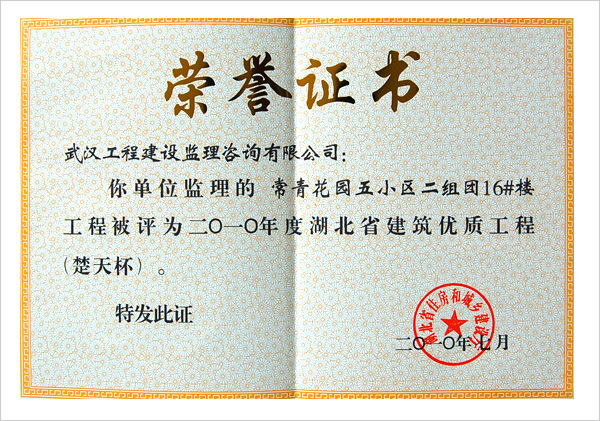 荣誉证书
武汉工程建设监理咨询有限公司:
你单位监理的 常青花园五小区二组团16#楼
工程被评为二〇一〇年度湖北省建筑优质工程
(楚天杯)。
特发此证
湖北省住房和城乡建设厅
二〇一〇年七月